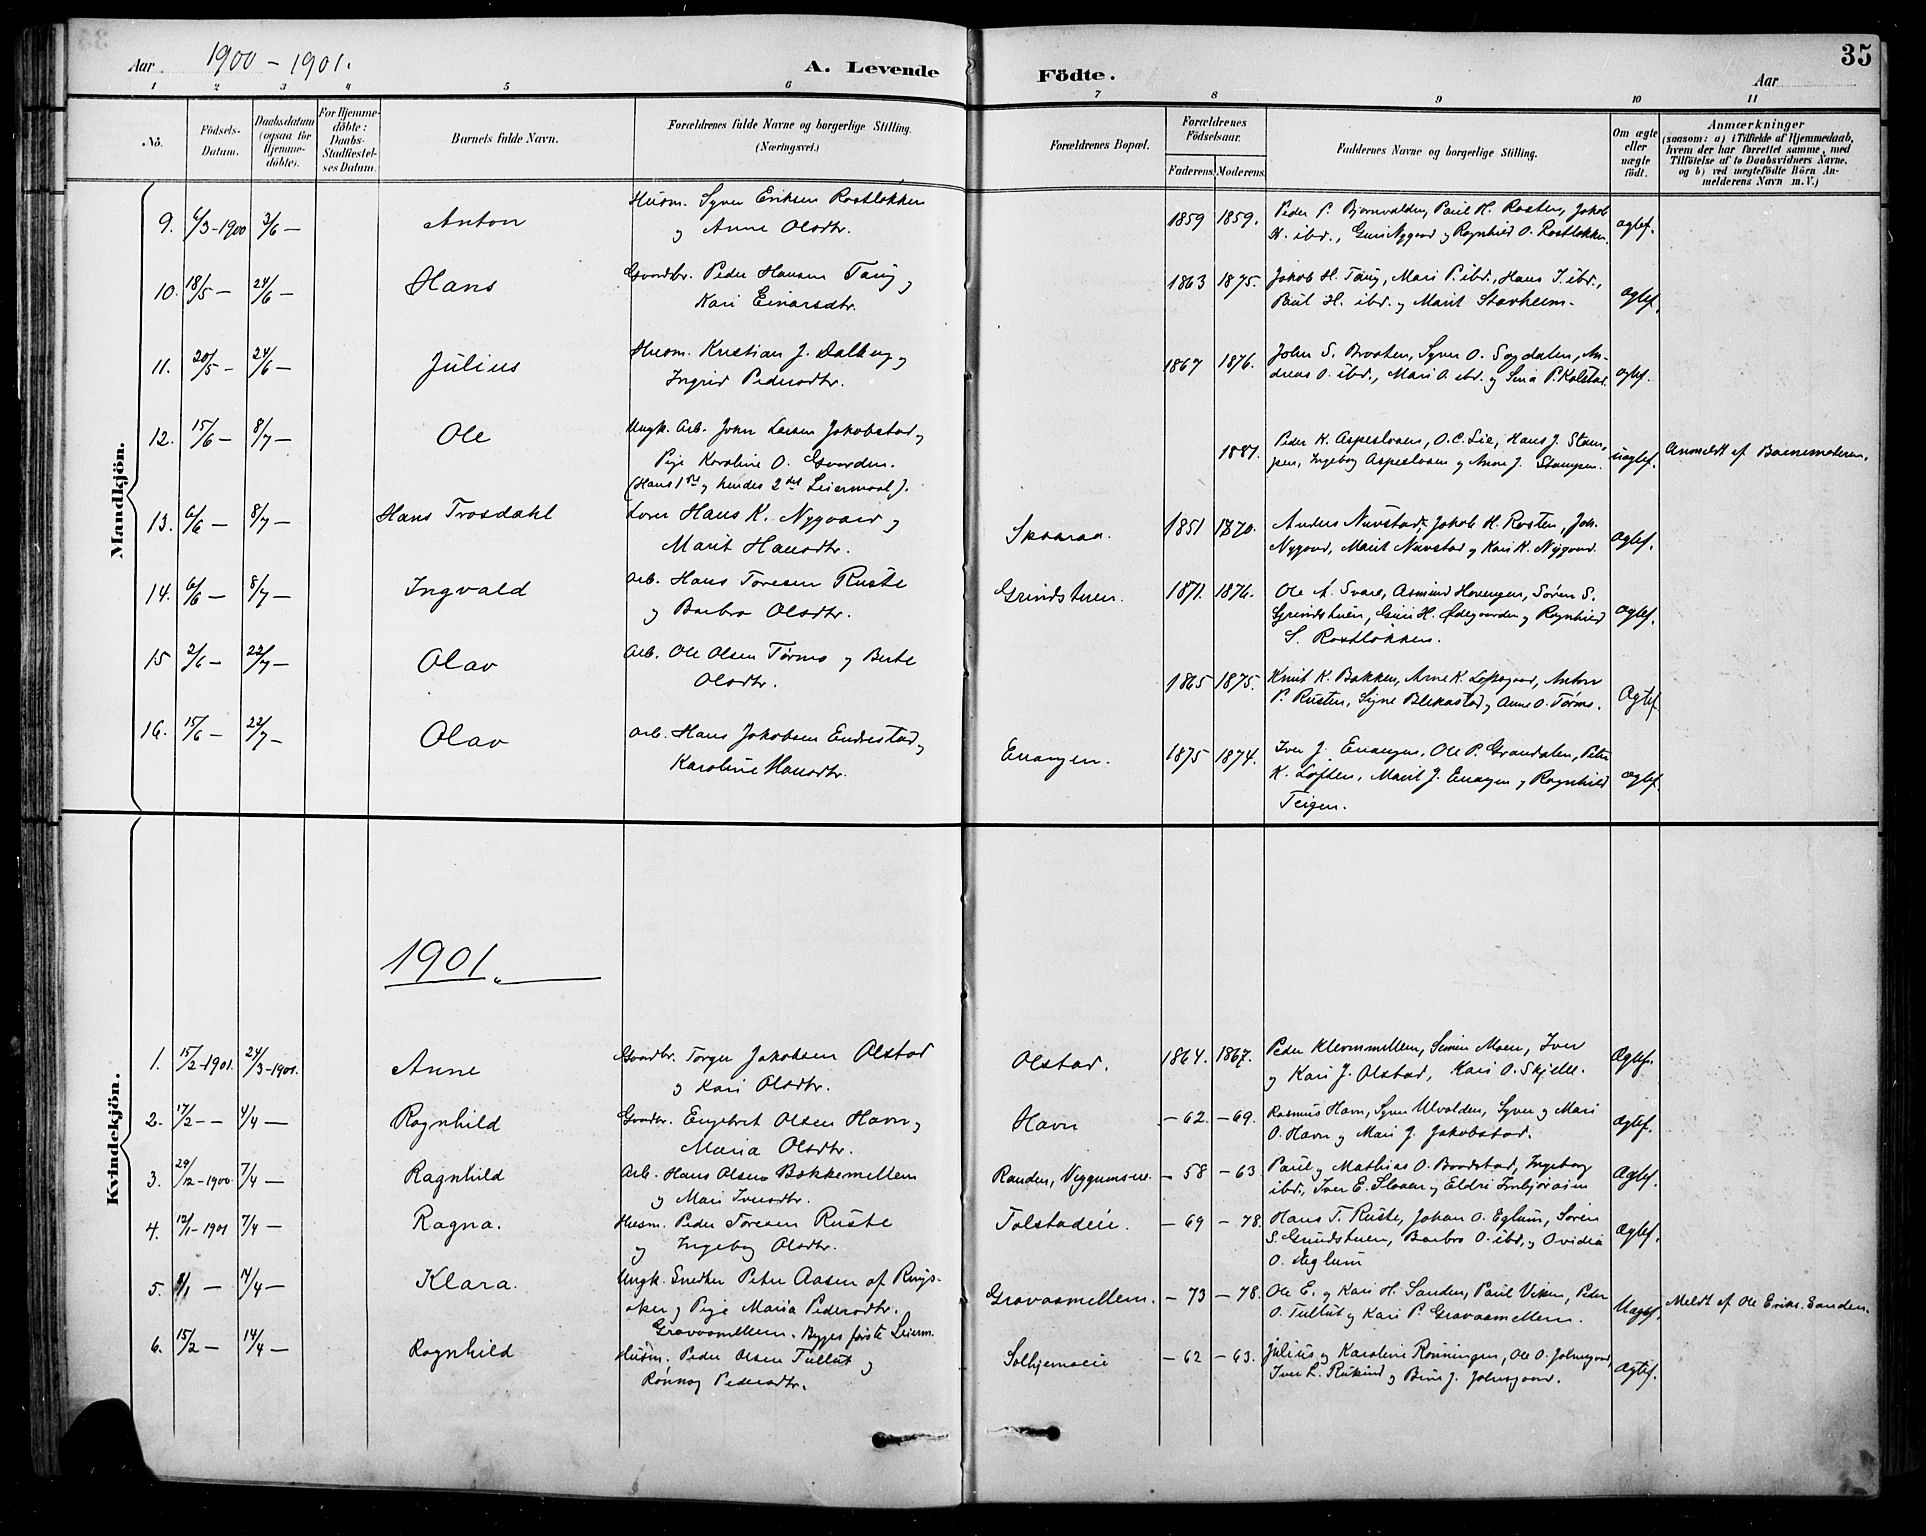 35
Aar 1900 - 1901.
A. Levende Födte.
Aar
1 2 3 4 5 6 7 8 9 10 11
No.
Födsels-Datum.
Daabsdatum (ogsaa for Hjemmedöbte).
For Hjemmedöbte: Daabs-Stadfestelses Datum.
Barnets fulde Navn.
Forældrenes fulde Navne og borgerlige Stilling. (Næringsvei.)
Forældrenes Bopæl.
Forældrenes Födselsaar.
Faderens. Moderens.
Faddernes Navne og borgerlige Stilling.
Om ægte eller uægte födt.
Anmærkninger
(saasom: a) i Tilfælde af Hjemmedaab, hvem der har forrettet samme, med Tilföielse af to Daabsvidners Navne. og b) ved uægtefödte Börn Anmelderens Navn m. V.)
Mandkjön.
9. 6/3-1900 3/6 — Anton
Husm. Syver Eriksen Rostløkken
og Anne Olsdtr.
1859 1859.
Peder P. Bjornvolden, Paul H. Rosten, Jakob
H. ibd., Guri Nygaard og Ragnhild O. Rostløkken.
ægtef.
10. 18/5 — 24/6 — Hans
Gaardbr. Peder Hansen Taug og
Kari Einarsdtr.
1863 1875.
Jakob H. Taug, Mari P. ibd., Hans J. ibd.,
H. ibd. og Marit Stavheim.
ægtef.
11. 20/5 — 24/6 — Julius
Husm. Kristian J. Dalheg
Ingrid Pedersdtr.
1867 1876.
John S. Braaten, Syver O. Sogdalen, An-
dreas O. ibd., Mari O. ibd. og Sina P. Kolstad.
ægtef.
12. 15/6 — 8/7 — Ole
Ungk. Arb. John Larsen Jakobstad og
Pige Karoline O. Gaarden.
(Hans 1ste og hendes 2det Leiermaal).
1881.
Peder K. Aspesloaen, O. C. Lie, Hans J. Stam-
pen, Ingeborg Aspesloaen og Anne J. Stampen.
uægtef.
Anmeldt af Barnemoderen.
13. 6/6 — 8/7 — Hans Trosdahl
Lærer Hans K. Nygaard og
Marit Hansdtr.
Skaaraa.
1851 1870.
Anders Nuvstad, Jakob H. Rosten, Joh.
Nygaard, Marit Nuvstad og Kari K. Nygaard.
ægtef.
14. 6/6 — 8/7 — Ingvald
Arb. Hans Toresen Ruste
og Barbro Olsdtr.
Grindstuen.
1871. 1876.
Ole A. Svare, Asmund Haugen, Søren S.
Grindstuen, Guri H. Ødegaarden og Ragnhild
S. Rostløkken.
ægtef.
15 2/6 — 22/7 — Olav
Arb. Ole Olsen Tørmo og Berte
Olsdtr.
1865 1875.
Knut K. Bakken, Arne K. Loftsgaard, Anton
P. Rusten, Signe Blekastad og Anne O. Tørmo.
ægtef.
16. 15/6 — 22/7 — Olav
Arb. Hans Jakobsen Endrestad og
Karoline Hansdtr.
Enangen.
1875 1874.
Iver J. Enangen, Ole P. Grandalen, Peter
K. Loften, Marit J. Enangen og Ragnhild
Teigen.
ægtef.
1901.
Kvindekjön.
1. 15/2-1901. 24/3-1901. Anne
Gaardbr. Torger Jakobsen Olstad
og Kari Olsdtr.
Olstad.
1864. 1867.
Peder Klemmellem, Simen Moen, Iver
og Kari J. Olstad, Kari O. Skjelle.
ægtef.
2. 17/2 — 4/4 — Ragnhild
Gaardbr. Engebret Olsen Havn og
Maria Olsdtr.
Havn
— 62. — 69.
Rasmus Havn, Syver Ulvolden, Syver og Mari
O. Havn og Mari J. Jakobstad.
ægtef.
3. 29/12-1900. 7/4 — Ragnhild
Arb. Hans Olsen Bakkemellem
og Mari Iversdtr.
Randen, Viggumseie.
— 58 — 63
Paul og Mathias O. Baadstad, Ingeborg
ibd., Iver E. Sloaen og Eldri
ægtef.
4. 12/1-1901 7/4 — Ragna.
Husm. Peder Toresen Ruste
og Ingeborg Olsdtr.
Tolstadeie.
— 69 — 78.
Hans T. Ruste, Johan O. Eglum, Søren
S. Grindstuen, Barbro O. ibd. og Ovidia
O. Øeglum
ægtef.
5. 8/1 — 14/4 — Klara.
Ungk. Snedker Peter Aasen af Rings-
aker og Pige Maria Pedersdtr.
Gravaasmellem. Begges første Leierm.
Gravaasmellem.
— 73 — 78.
Ole E. og Kari H. Sanden, Paul Viken, Peder
O. Tullut og Kari P. Gravaasmellem.
Uægtef.
Meldt af Ole Eriks. Sanden.
6. 15/2 — 14/4 — Ragnhild
Husm. Peder Olsen Tullut og
Rønnog Pedersdtr.
Solhjemseie
— 62 — 63.
Julius og Karoline Rønningen, Ole O. Johnsgaard,
Iver L. Rusland og J. Johnsgaard.
ægtef.